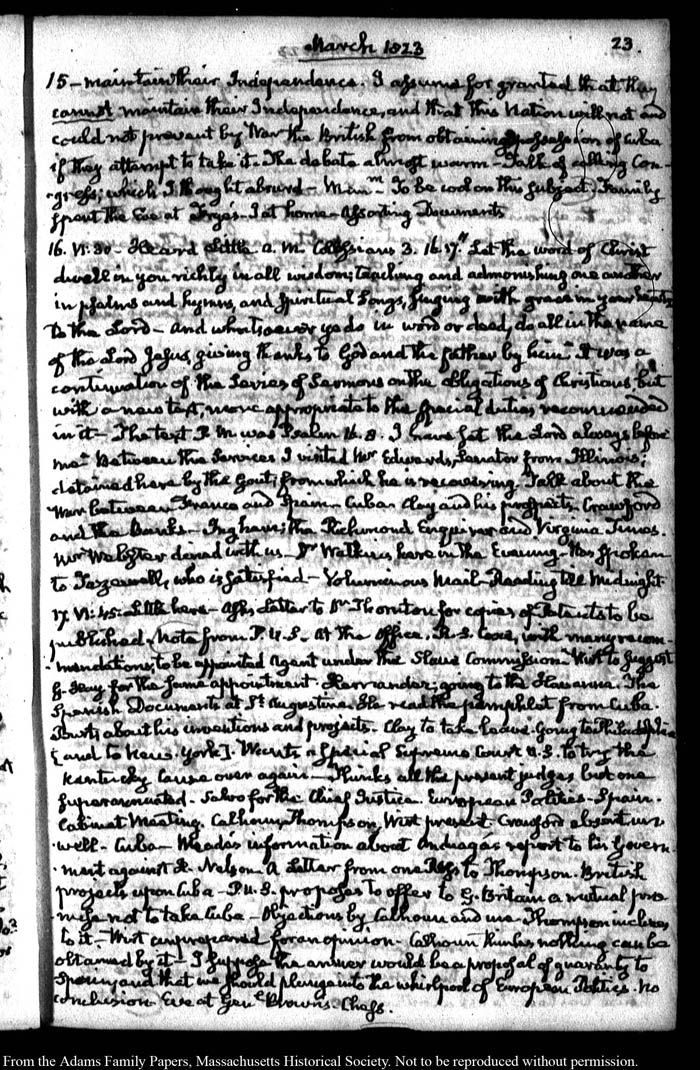 March 1823
23.
15 – maintain their Independence. I assume for granted that they
cannot maintain their Independence, and that this Nation will not and
could not prevent by War the British from obtaining possession of Cuba
if they attempt to take it. The debate almost warm – Talk of calling Con-
-gress; which I thought absurd – Mem.m To be cool on this subject. Family
spent the Eve at Frye's. I at home – Assorting Documents
16. VI:30. Heard Little A. M. Colossians 3. 16. 17. "Let the word of Christ
dwell in you richly in all wisdom; teaching and admonishing one another
in psalms and hymns, and spiritual songs, singing with grace in your hearts
to the Lord – And whatsoever ye do in word or deed, do all in the name
of the Lord Jesus, giving thanks to God and the father by him" It was a
continuation of the Series of Sermons on the obligations of Christians but
with a new text, more appropriate to the special duties recommended
in it – The text P. M. was Psalm 16. 8. I have set the Lord always before
me" Between the Services I visited Mr Edwards, Senator from Illinois:
detained here by the Gout; from which he is recovering. Talk about the
War between France and Spain – Cuba. Clay and his prospects. Crawford
and the Banks – Ingham; the Richmond Enquirer and Virginia Times.
Mr Webster dined with us – Dr Watkins here in the Evening. Has spoken
to Tazewell, who is satisfied – Voluminous Mail – Reading till Midnight.
17. VI:45. Little here – Asks letter to Dr Thornton for copies of Patents to be
published. Note from P. U. S. – At the Office. R. S. Coxe, with many recom-
-mendations, to be appointed Agent under the Slave Commission. Wirt to suggest
Key for the same appointment. Hernandez; going to the Havanna. The
Spanish Documents at St Augustine. He read the pamphlet from Cuba.
about his inventions and projects. Clay to take leave. Going to Philadelphia
[and to New-York]. Wants a special Supreme Court U. S. to try the
Kentucky Cause over again – Thinks all the present judges but one
superannuated. Salvo for the Chief Justice. European Politics – Spain.
Cabinet Meeting. Calhoun, Thompson, Wirt present. Crawford absent un-
-well – Cuba – Meade's information about Anduaga's report to his Govern-
-ment against H. Nelson. A Letter from one to Thompson. British
projects upon Cuba – P. U. S. proposes to offer to G. Britain a mutual pro-
-mise not to take Cuba – Objections by Calhoun and me. Thompson inclines
to it – Wirt unprepared for an opinion. Calhoun thinks nothing can be
obtained by it – I suppose the answer would be a proposal of guaranty to
Spain; and that we should plunge into the whirlpool of European Politics. No
conclusion. Eve at Genl Brown's. Chess.
From the Adams Family Papers, Massachusetts Historical Society. Not to be reproduced without permission.